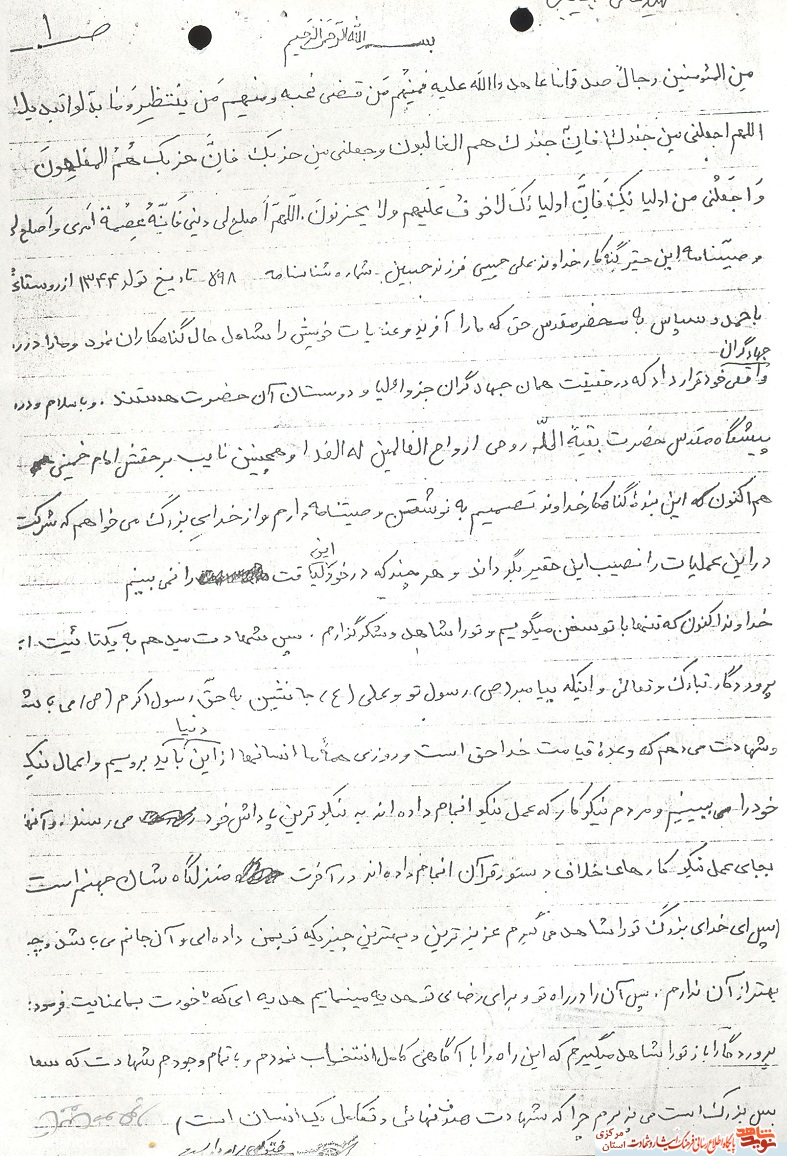 ص ۱
بسم الله الرحمن الرحیم
من المؤمنین رجال صدقوا ما عاهدوا الله علیه فمنهم مَن قضی نحبه و منهم مَن ینتظر وَ ما بدلوا تبدیلا
اللهم اجعلنی مِن جندک فانَّ جندک هم الغالبون وجعلنی مِن حزبک فانَّ حزبک هُمُ المفلحون
وَ اجَعَلنی من اولیائک فَانَّ اولیائک لا خوفٌ عَلَیهم ولا یحزنونَ. اللّهم اَصلح لی دینی فَانَّهُ عِصْمَة اَمری و اَصلح لی
وصیتنامه این حقیر گنه کار خداوند علی حبیبی فرزند حسین شماره شناسنامه ۸۹۸ تاریخ تولد ۱۳۴۴ از روستای
با حمد و سپاس به محضر مقدس حق که ما را آفرید و عنایات خویش را شامل حال گناهکاران نمود و ما را در
جهادگران
واقعی خود قرار داد که در حقیقت همان جهادگران جزو اولیا و دوستان آن حضرت هستند. و با سلام و درود
پیشگاه مقدس حضرت بقیة اللّه روحی ارواح العالمین له الفدا و همچنین نایب بر حقش امام خمینی
هم اکنون که این بندهٔ گناه کار خداوند تصمیم به نوشتن وصیتنامه دارم و از خدای بزرگ می خواهم که شرکت
در این عملیات را نصیب این حقیر بگرداند و هر چند که در خود این لیاقت را نمی بینم
خداوندا کنون که تنها با تو سخن میگویم و تو را شاهد و شکرگذارم. پس شهادت میدهم به یکتائیت ای
پروردگار تبارک و تعالی و اینکه پیامبر (ص) رسول تو و علی (ع) جانشین به حقّ رسول اکرم (ص) می باشد
و شهادت می دهم که وعدهٔ قیامت خدا حق است و روزی همهٔ ما انسانها از این دنیا باید برویم و اعمال نیک
خود را می بینیم و مردم نیکو کار که عمل نیکو انجام داده اند به نیکوترین پاداش خود می رسند. و آنها
بجای عمل نیکو کارهای خلاف دستور قرآن انجام داده اند در آخرت منزلگاه شان جهنم است
(پس ای خدای بزرگ تو را شاهد می گیرم عزیزترین و بهترین چیزیکه تو بمن داده ای و آن جانم می باشد و چه
بهتر از آن ندارم. پس آن را در راه تو و برای رضای تو هدیه مینمایم هدیه ای که خودت بما عنایت فرمود
پروردگارا باز تو را شاهد میگیرم که این راه را با آگاهی کامل انتخاب نمودم و با تمام وجودم شهادت که سعا
بس بزرگ است می پذیرم چرا که شهادت هدف نهائی و تکامل یک انسان است)
نوید شاهد
پایگاه اطلاع رسانی فرهنگ ایثار و شهادت استان مرکزی